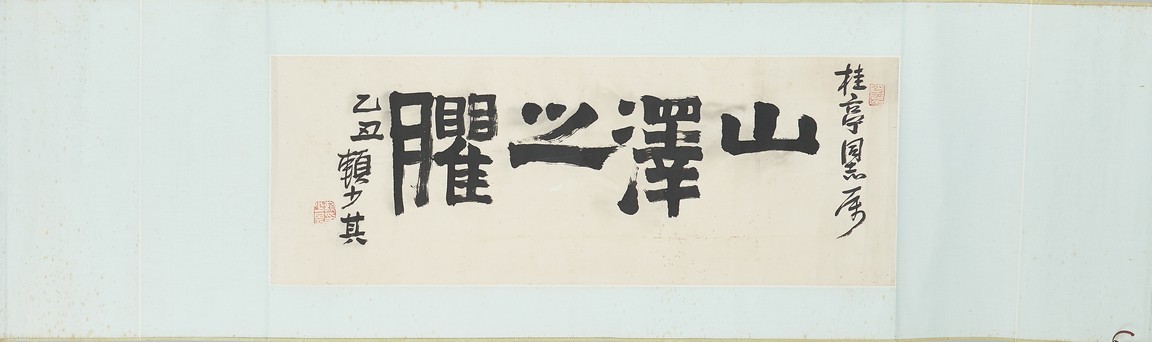 桂亭同志属
山澤之臞
乙丑
賴少其